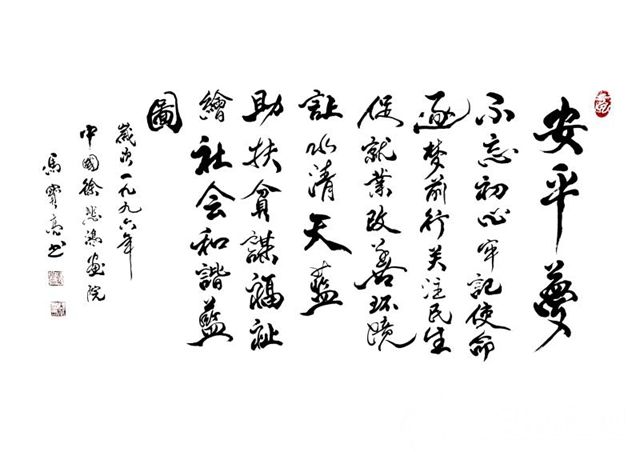 安平夢
不忘初心牢記使命
逐梦前行关注民生
促就業改善环境
让水清天藍
助扶貧謀福祉
繪社会和諧藍
圖
一九九六年
中國徐悲鴻画院
馬寶亮书